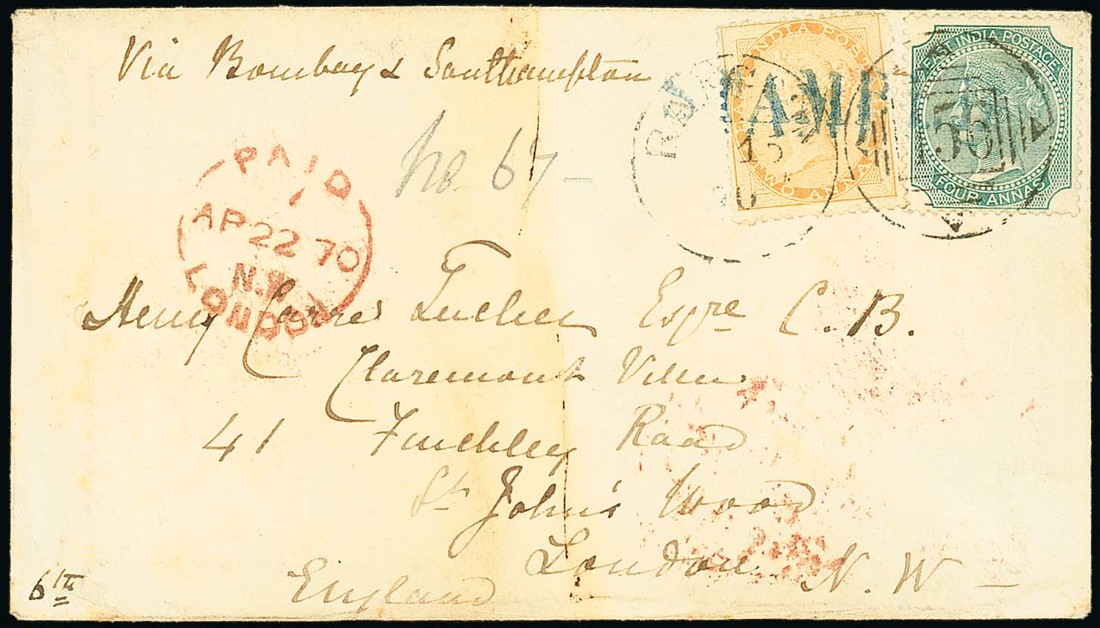 Via Bombay & Southampton
INDIA POSTAGE
TWO ANNAS
EAST INDIA POSTAGE
FOUR ANNAS
No 67-
PAID
AP 22 70
N.W
LONDON
Henry Carre Tucker Esqre C. B.
Claremont Villas
41 Finchley Road
St John's Wood
London N. W -
England
6th